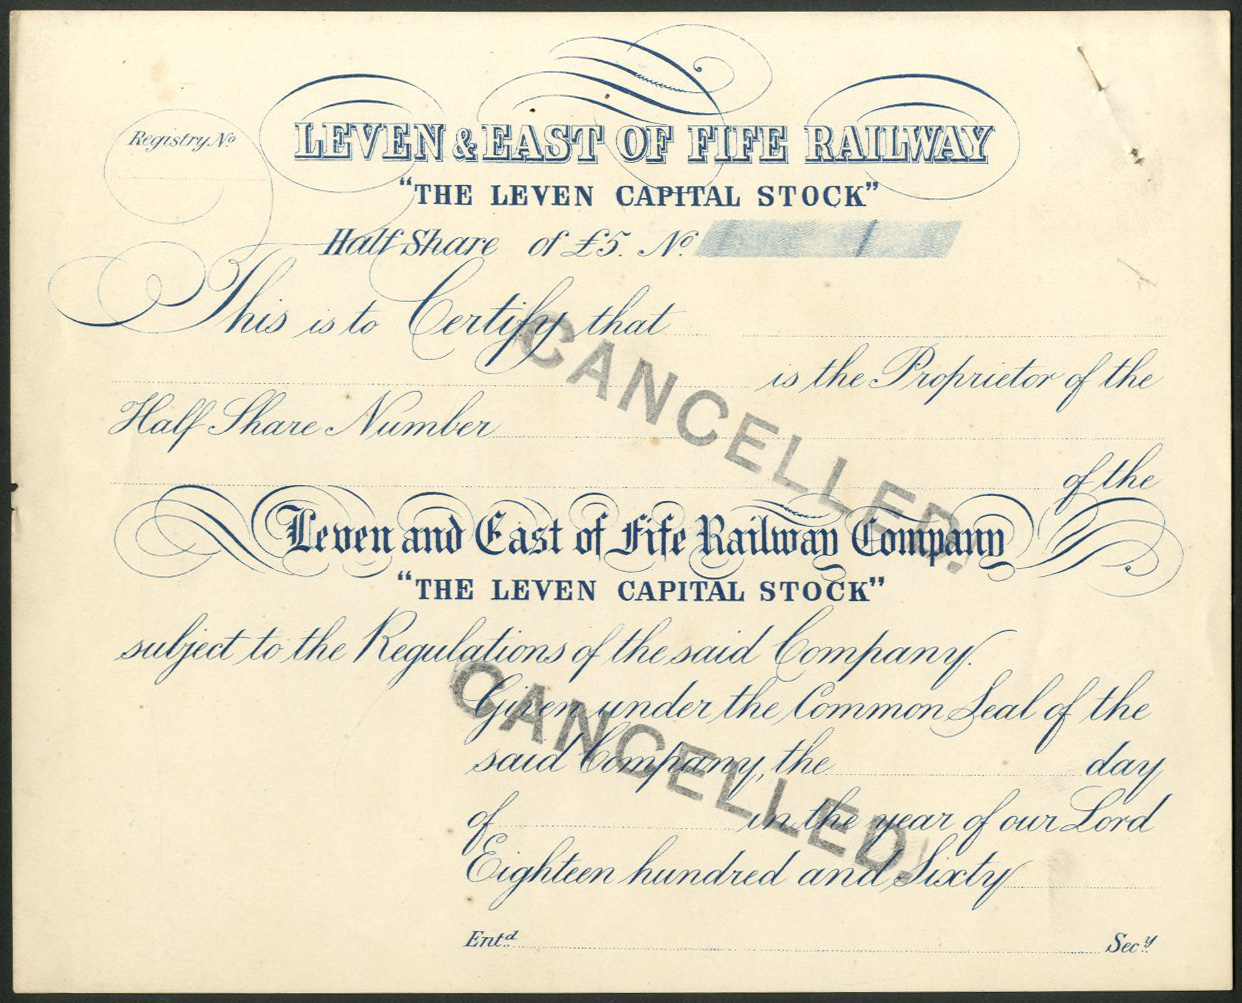 LEVEN & EAST OF FIFE RAILWAY
Registry No
“THE LEVEN CAPITAL STOCK”
Half Share of £5. No.
This is to Certify that
is the Proprietor of the
Half Share Number
of the
Leven and East of Fife Railway Company
“THE LEVEN CAPITAL STOCK”
subject to the Regulations of the said Company.
Given under the Common Seal of the
said Company, the day
of in the year of our Lord
Eighteen hundred and Sixty
Entd Secy
CANCELLED.
CANCELLED.